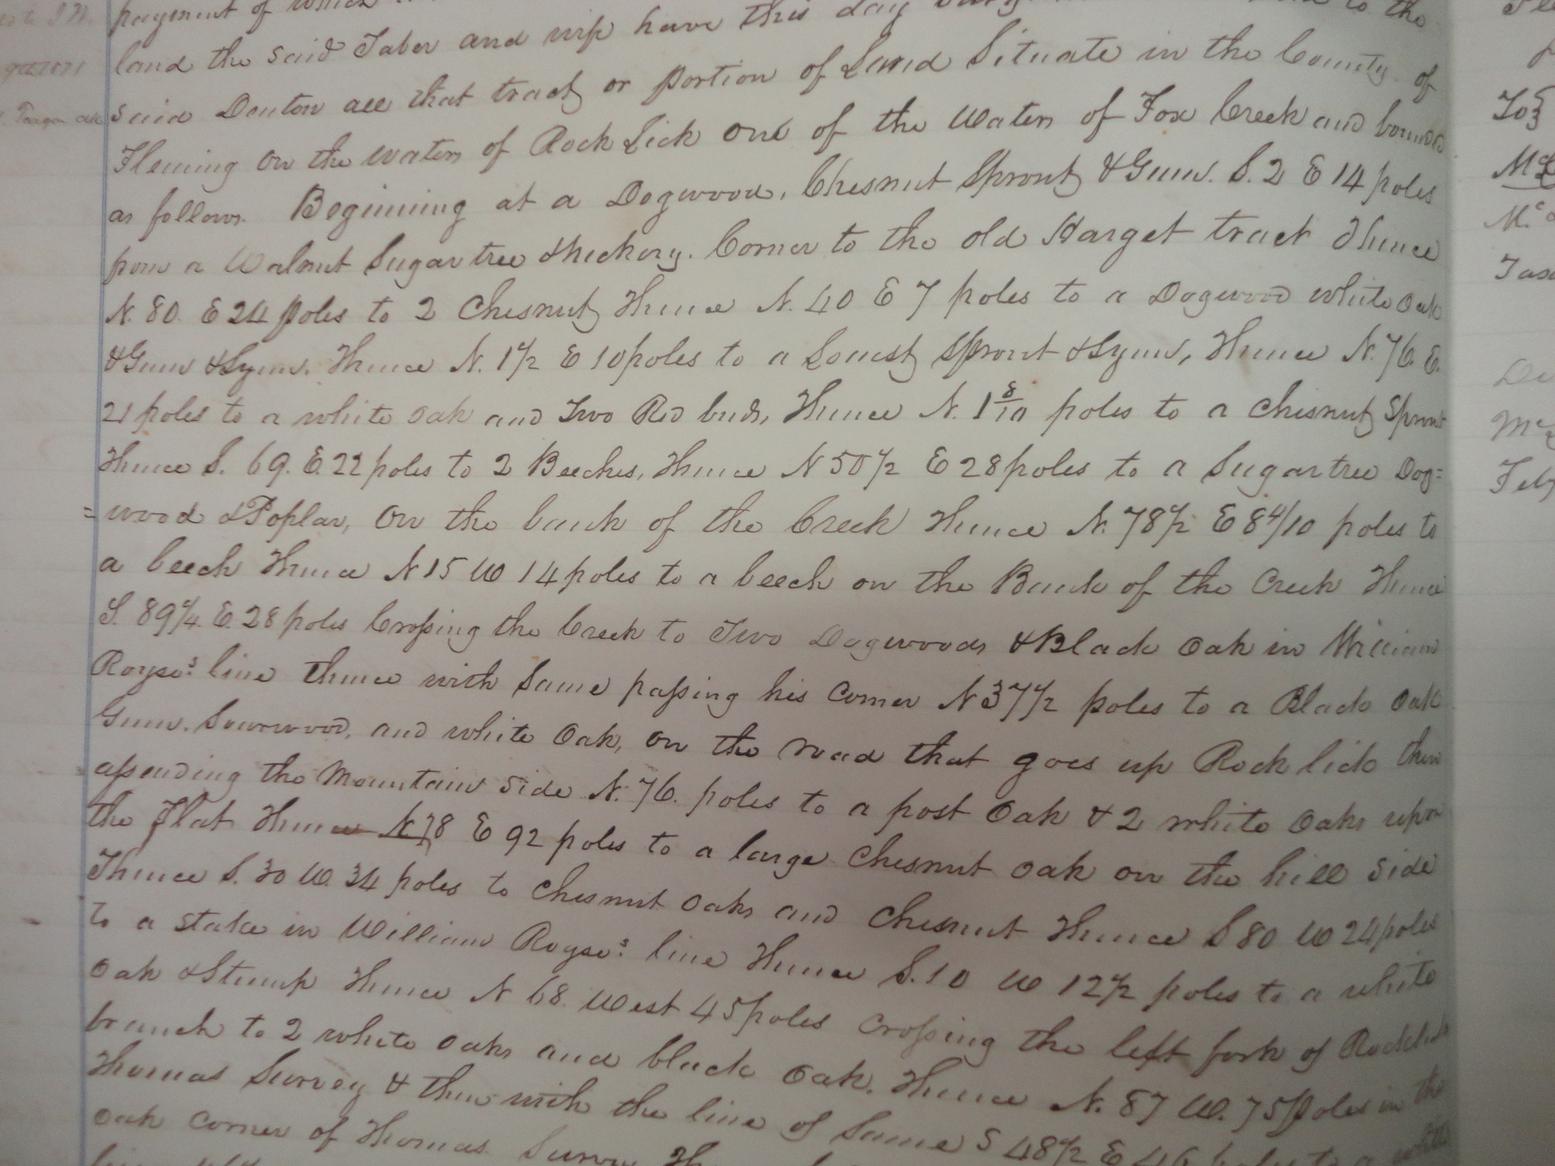 payment of which
land the said Taber and wife have this day to the
said Denton all that tract or portion of Land Situate in the County of
Fleming on the waters of Rock Lick one of the Waters of Fox Creek and bounded
as follows. Beginning at a Dogwood, Chesnut Sprout & Gum. S. 2 E 14 poles
from a Walnut Sugartree & hickory. Corner to the old Harget tract Thence
N. 80. E 24 poles to 2 Chesnut, Thence N. 40 E 7 poles to a Dogwood white oak
& Gum & Lynn. Thence N. 1 1/2 E 10 poles to a Locust Sprout & Lynn, Thence N. 76. E.
21 poles to a white oak and Two Red buds, Thence N. 1 8/10 poles to a chesnut Sprout
Thence S. 69. E. 22 poles to 2 Beeches, Thence N 50 1/2 E 28 poles to a Sugartree Dog=
=wood & Poplar, on the bank of the Creek Thence N. 78 1/2 E 8 4/10 poles to
a beech Thence N 15 W 14 poles to a beech on the Bank of the Creek Thence
S. 89 1/4. E. 28 poles Crossing the Creek to Two Dogwoods & Black Oak in William
Royse's line thence with Same passing his Corner N 37 1/2 poles to a Black oak
Gum. Sourwood, and white Oak, on the road that goes up Rock lick then
assending the Mountain side N. 76. poles to a post Oak & 2 white Oaks upon
the flat Thence N 78 E 92 poles to a large Chesnut oak on the hill side
Thence S. 30 W. 34 poles to Chesnut oaks and Chesnut Thence S 80 W 24 poles
to a stake in William Royse's line Thence S. 10 W 12 1/2 poles to a white
oak & Stump Thence N 68. West 45 poles Crossing the left fork of Rocklick
branch to 2 white oaks and black oak. Thence N. 87 W. 75 poles in the
Thomas Survey & then with the line of Same S 48 1/2 E 46 poles to a white
oak corner of Thomas Survey
Toz
Mc
Tas
De
Feb